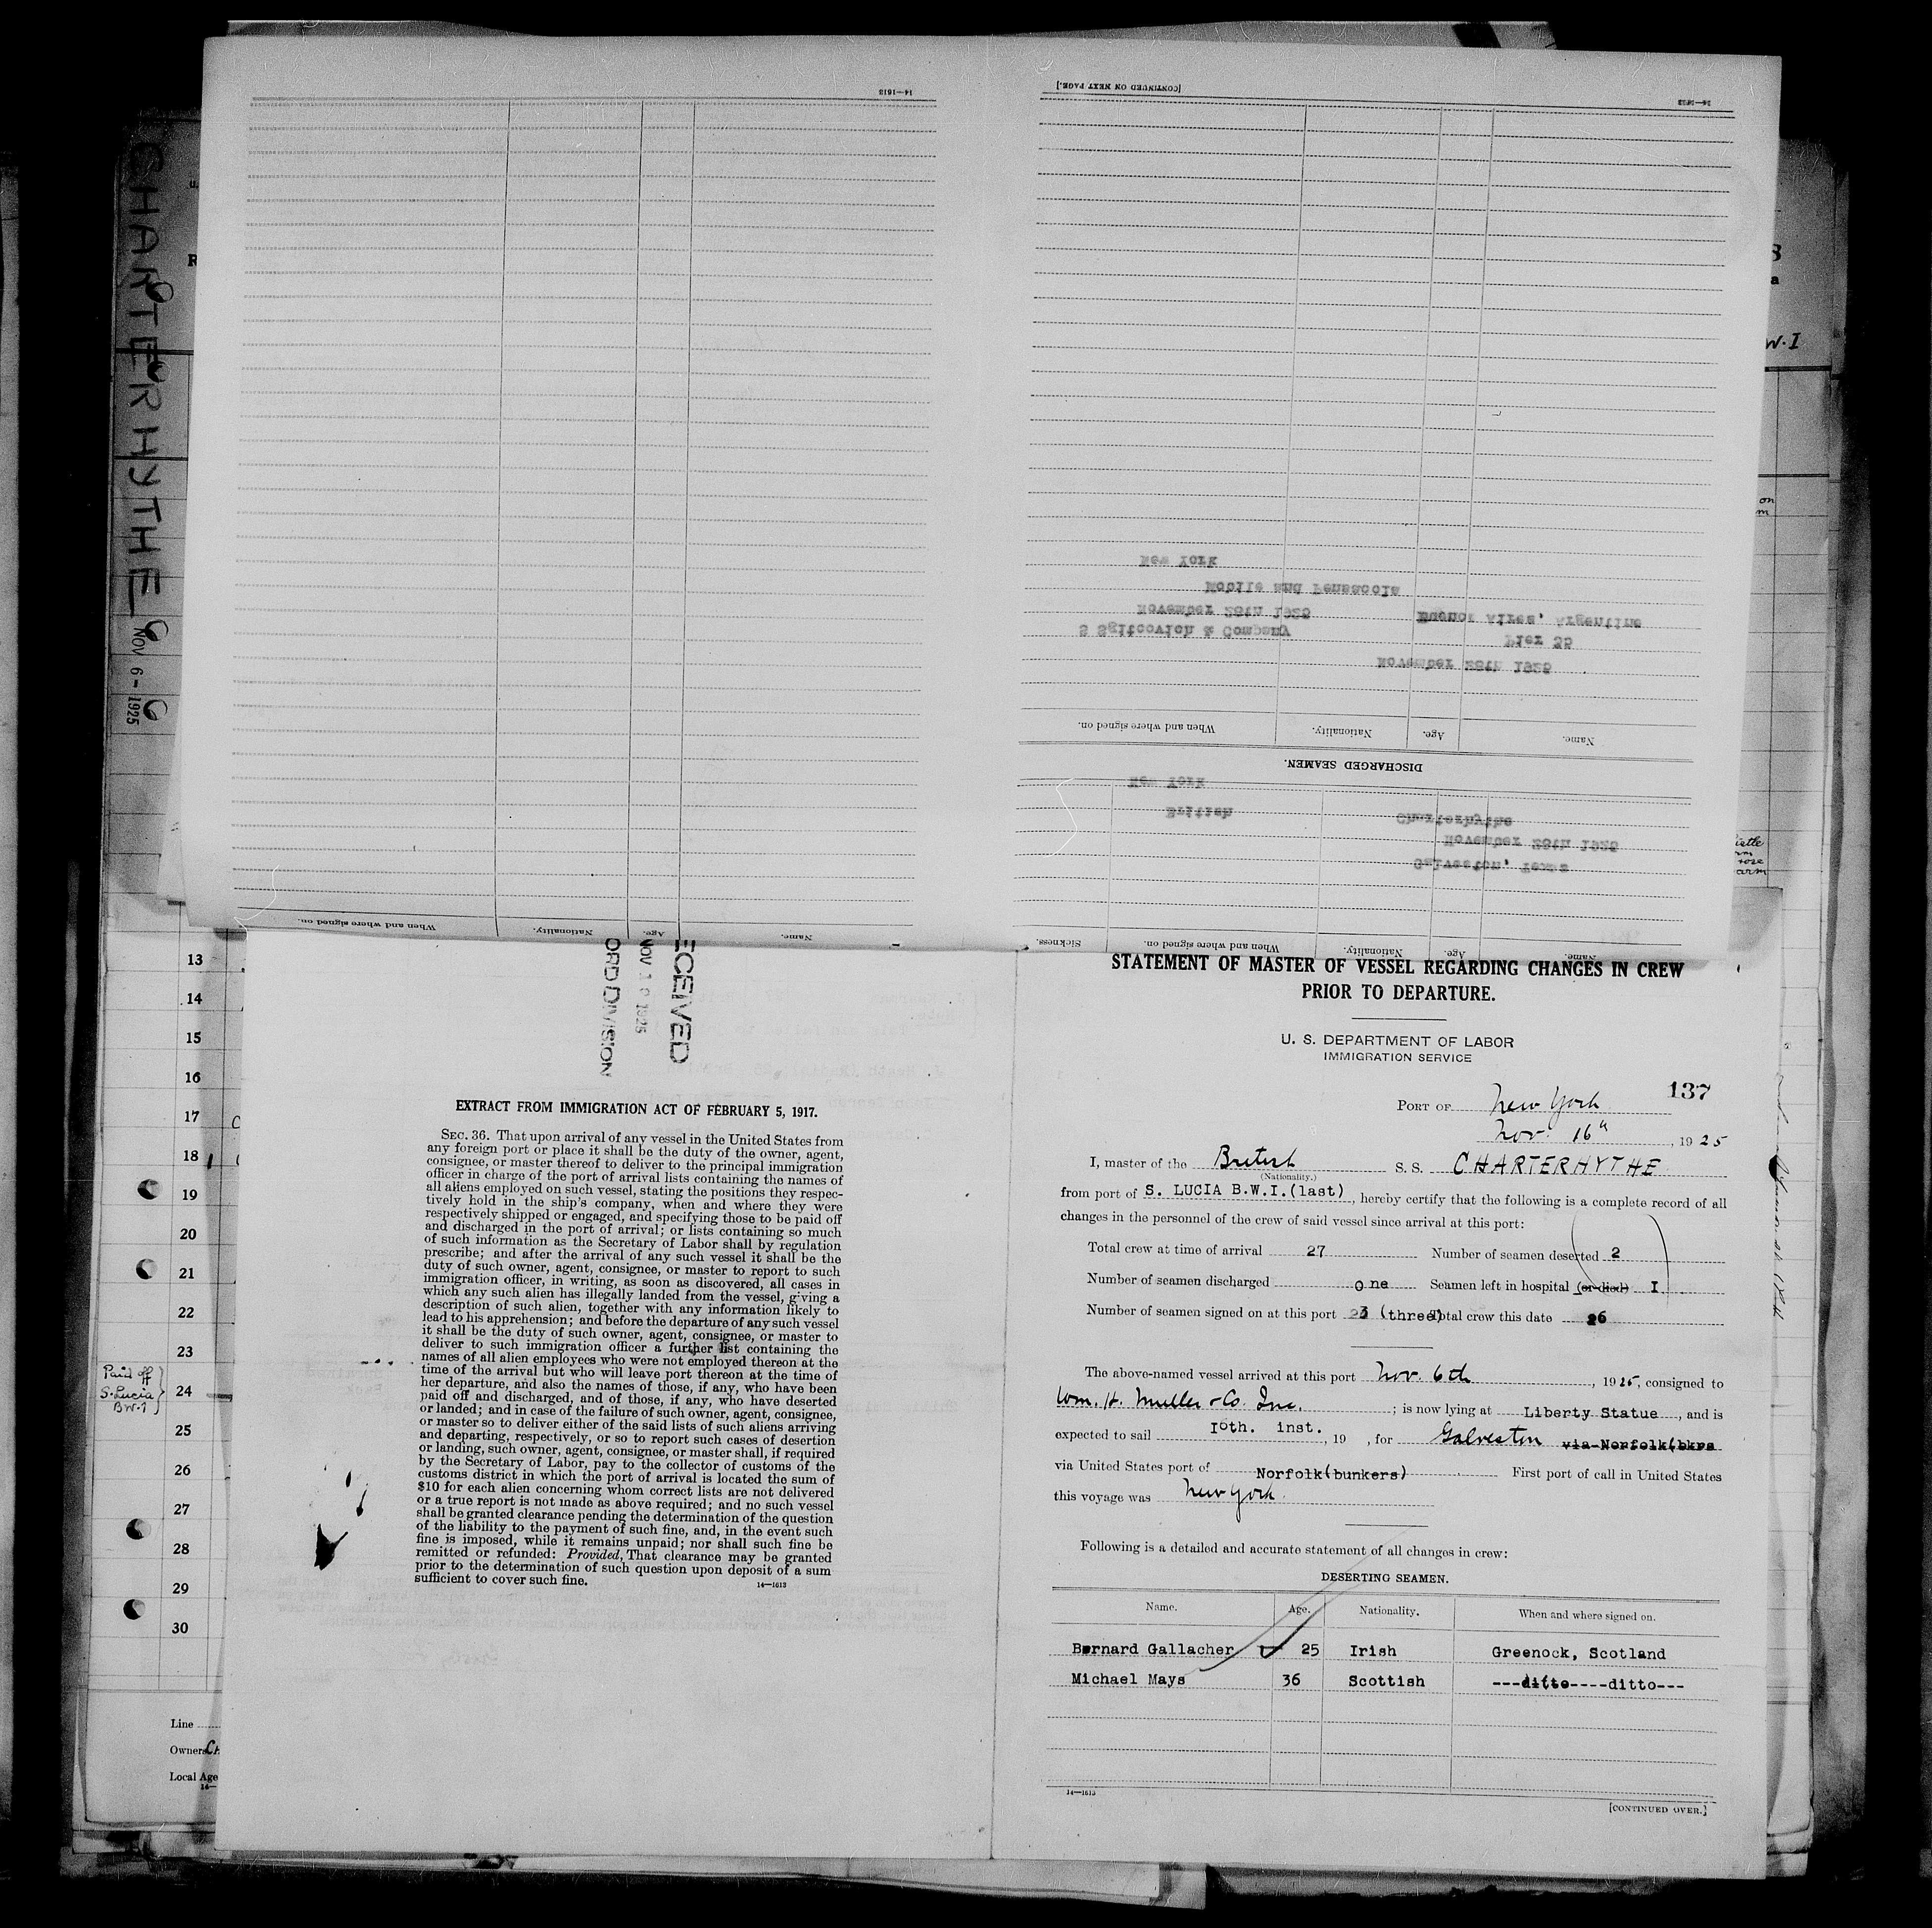 CHARTERHYTHE
NOV 6 - 1925
14—1613
[CONTINUED ON NEXT PAGE.]
14—1613
New York
Mobile and Pensacola
November 28th 1925
Buenos Aires, Argentine
S Sgitcovich & Company
Pier 35
November 28th 1925
When and where signed on.
Nationality.
Age.
Name.
DISCHARGED SEAMEN.
New York
British
Charterhythe
November 28th 1925
Galveston, Texas
When and where signed on.
Nationality.
Age.
Name.
Sickness.
When and where signed on.
Nationality.
Age.
Name.
W.I
13
14
15
16
17
18
19
20
21
22
23
24
25
26
27
28
29
30
Paid off
S. Lucia
B.W.I
Line
Owners
Local Age
ECEIVED
NOV 1 1925
ORD DIVISION
EXTRACT FROM IMMIGRATION ACT OF FEBRUARY 5, 1917.
SEC. 36. That upon arrival of any vessel in the United States from
any foreign port or place it shall be the duty of the owner, agent,
consignee, or master thereof to deliver to the principal immigration
officer in charge of the port of arrival lists containing the names of
all aliens employed on such vessel, stating the positions they respec-
tively hold in the ship's company, when and where they were
respectively shipped or engaged, and specifying those to be paid off
and discharged in the port of arrival; or lists containing so much
of such information as the Secretary of Labor shall by regulation
prescribe; and after the arrival of any such vessel it shall be the
duty of such owner, agent, consignee, or master to report to such
immigration officer, in writing, as soon as discovered, all cases in
which any such alien has illegally landed from the vessel, giving a
description of such alien, together with any information likely to
lead to his apprehension; and before the departure of any such vessel
it shall be the duty of such owner, agent, consignee, or master to
deliver to such immigration officer a further list containing the
names of all alien employees who were not employed thereon at the
time of the arrival but who will leave port thereon at the time of
her departure, and also the names of those, if any, who have been
paid off and discharged, and of those, if any, who have deserted
or landed; and in case of the failure of such owner, agent, consignee,
or master so to deliver either of the said lists of such aliens arriving
and departing, respectively, or so to report such cases of desertion
or landing, such owner, agent, consignee, or master shall, if required
by the Secretary of Labor, pay to the collector of customs of the
customs district in which the port of arrival is located the sum of
$10 for each alien concerning whom correct lists are not delivered
or a true report is not made as above required; and no such vessel
shall be granted clearance pending the determination of the question
of the liability to the payment of such fine, and, in the event such
fine is imposed, while it remains unpaid; nor shall such fine be
remitted or refunded: Provided, That clearance may be granted
prior to the determination of such question upon deposit of a sum
sufficient to cover such fine.
14—1613
STATEMENT OF MASTER OF VESSEL REGARDING CHANGES IN CREW
PRIOR TO DEPARTURE.
U. S. DEPARTMENT OF LABOR
IMMIGRATION SERVICE
137
PORT OF New York
Nov. 16th, 1925
I, master of the British S. S. CHARTERHYTHE
(Nationality.)
from port of S. LUCIA B.W.I.(last), hereby certify that the following is a complete record of all
changes in the personnel of the crew of said vessel since arrival at this port:
Total crew at time of arrival 27 Number of seamen deserted 2
Number of seamen discharged one Seamen left in hospital (or died) I
Number of seamen signed on at this port 3 (three) Total crew this date 26
The above-named vessel arrived at this port Nov. 6th, 1925, consigned to
Wm. H. Muller & Co. Inc. ; is now lying at Liberty Statue, and is
expected to sail 10th. inst., 19 , for Galveston via-Norfolk(bkrs
via United States port of Norfolk(bunkers) First port of call in United States
this voyage was New York
Following is a detailed and accurate statement of all changes in crew:
DESERTING SEAMEN.
Name. Age. Nationality. When and where signed on.
Bernard Gallacher 25 Irish Greenock, Scotland
Michael Mays 36 Scottish ---ditto----ditto---
14—1613
[CONTINUED OVER.]